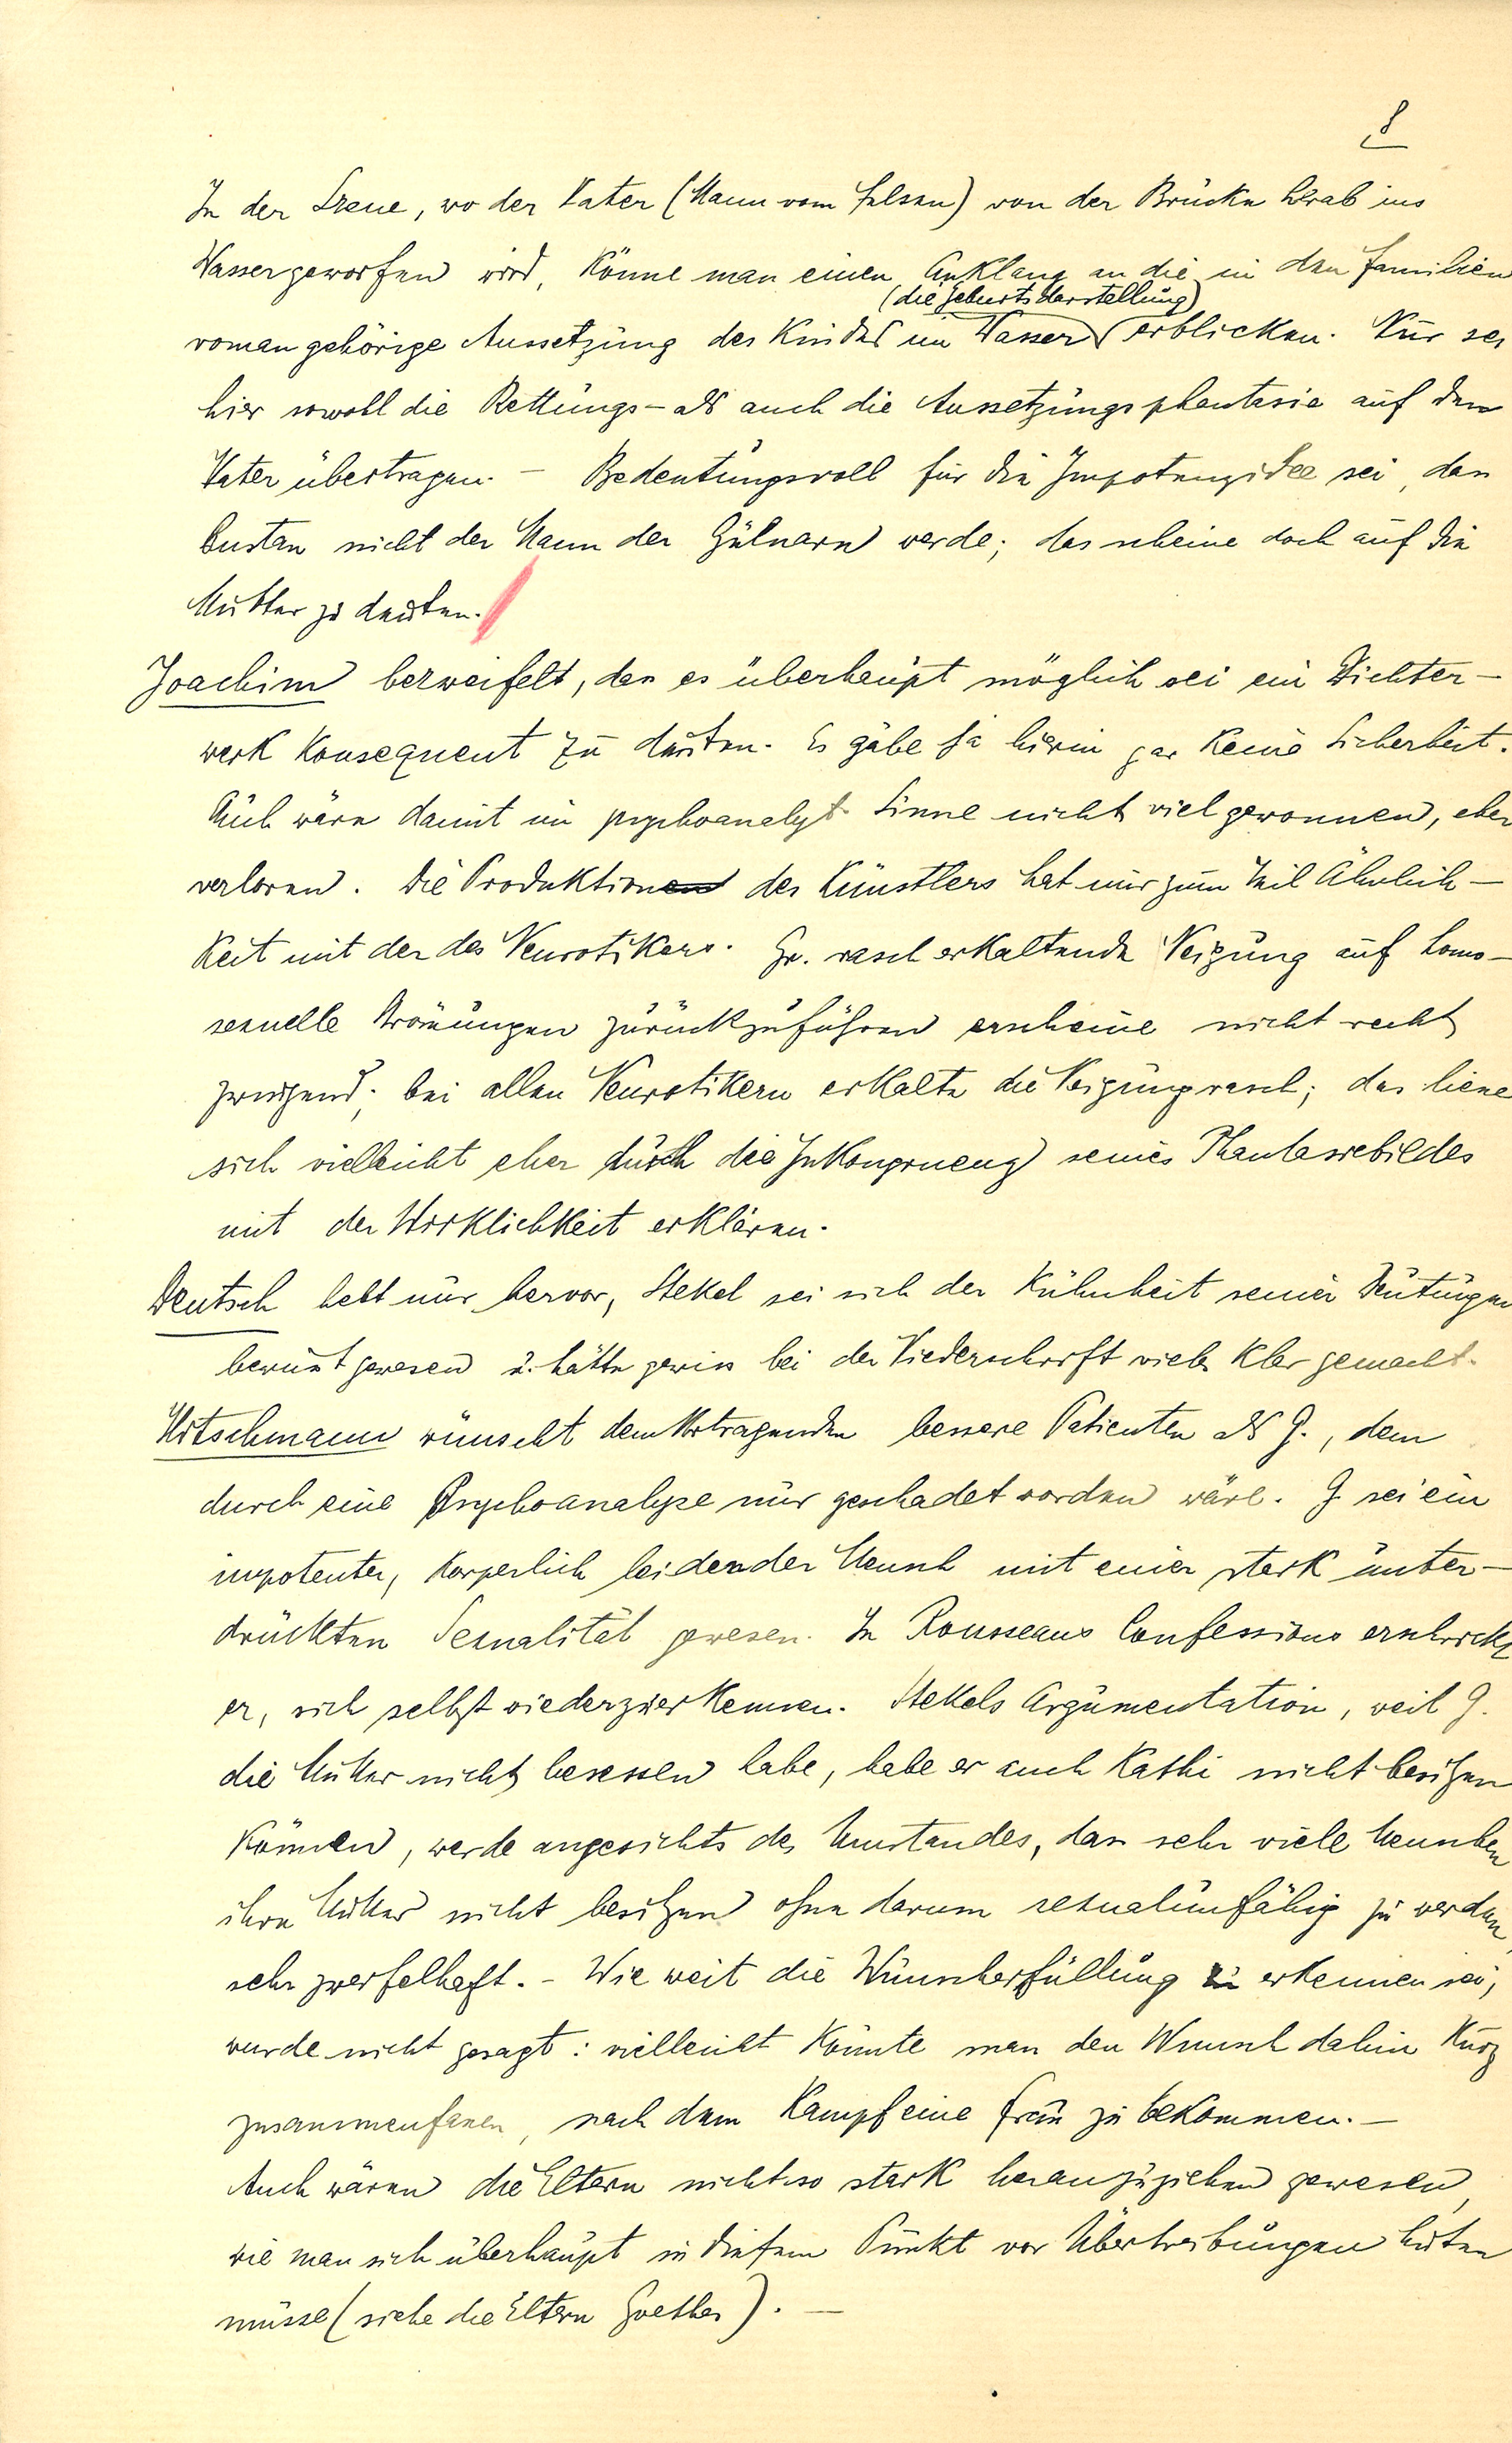 8
In der Szene, wo der Vater (Mann vom Felsen) von der Brücke herab ins
Wasser geworfen wird, könne man einen Anklang an die in den Familien
(die Geburtsdarstellung)
roman gehörige Aussetzung des Kindes im Wasser erblicken. Nur sei
hier sowohl die Rettungs- als auch die Aussetzungsphantasie auf den
Vater übertragen. — Bedeutungsvoll für die Impotenzidee sei, dass
Rustan nicht der Mann der Gülnare werde; das scheine doch auf die
Mutter zu deuten.
Joachim bezweifelt, dass es überhaupt möglich sei ein Dichter-
werk konsequent zu deuten. Es gäbe ja hierin gar keine Sicherheit.
Auch wäre damit im psychoanalyt. Sinne nicht viel gewonnen, eher
verloren. Die Produktionen des Künstlers hat nur zum Teil Ähnlich-
keit mit der des Neurotikers. Gr. rasch erkaltende Neigung auf homo-
sexuelle Strömungen zurückzuführen erscheine nicht recht
zwingend; bei allen Neurotikern erkalte die Neigung rasch; das liesse
sich vielleicht eher durch die Inkongruenz seines Phantasiebildes
mit der Wirklichkeit erklären.
Deutsch hebt nur hervor, Stekel sei sich der Kühnheit seiner Deutungen
bewusst gewesen u. hätte gewiss bei der Niederschrift vieles klar gemacht.
Hitschmann wünscht dem Vortragenden bessere Patienten als G., dem
durch eine Psychoanalyse nur geschadet worden wäre. G sei ein
impotenter, körperlich leidender Mensch mit einer stark unter-
drückten Sexualität gewesen. In Rousseaus Confessions erschrickt
er, sich selbst wiederzuerkennen. Stekels Argumentation, weil G.
die Mutter nicht besessen habe, habe er auch Kathi nicht besitzen
können, werde angesichts des Umstandes, dass sehr viele Menschen
ihre Mutter nicht besitzen ohne darum sexualunfähig zu werden,
sehr zweifelhaft. – Wie weit die Wunscherfüllung zu erkennen sei,
wurde nicht gesagt: vielleicht könnte man den Wunsch dahin kurz
zusammenfassen, nach dem Kampf eine Frau zu bekommen. —
Auch wären die Eltern nicht so stark heranzuziehen gewesen,
wie man sich überhaupt in diesem Punkt vor Übertreibungen hüten
müsse (siehe die Eltern Goethes). —